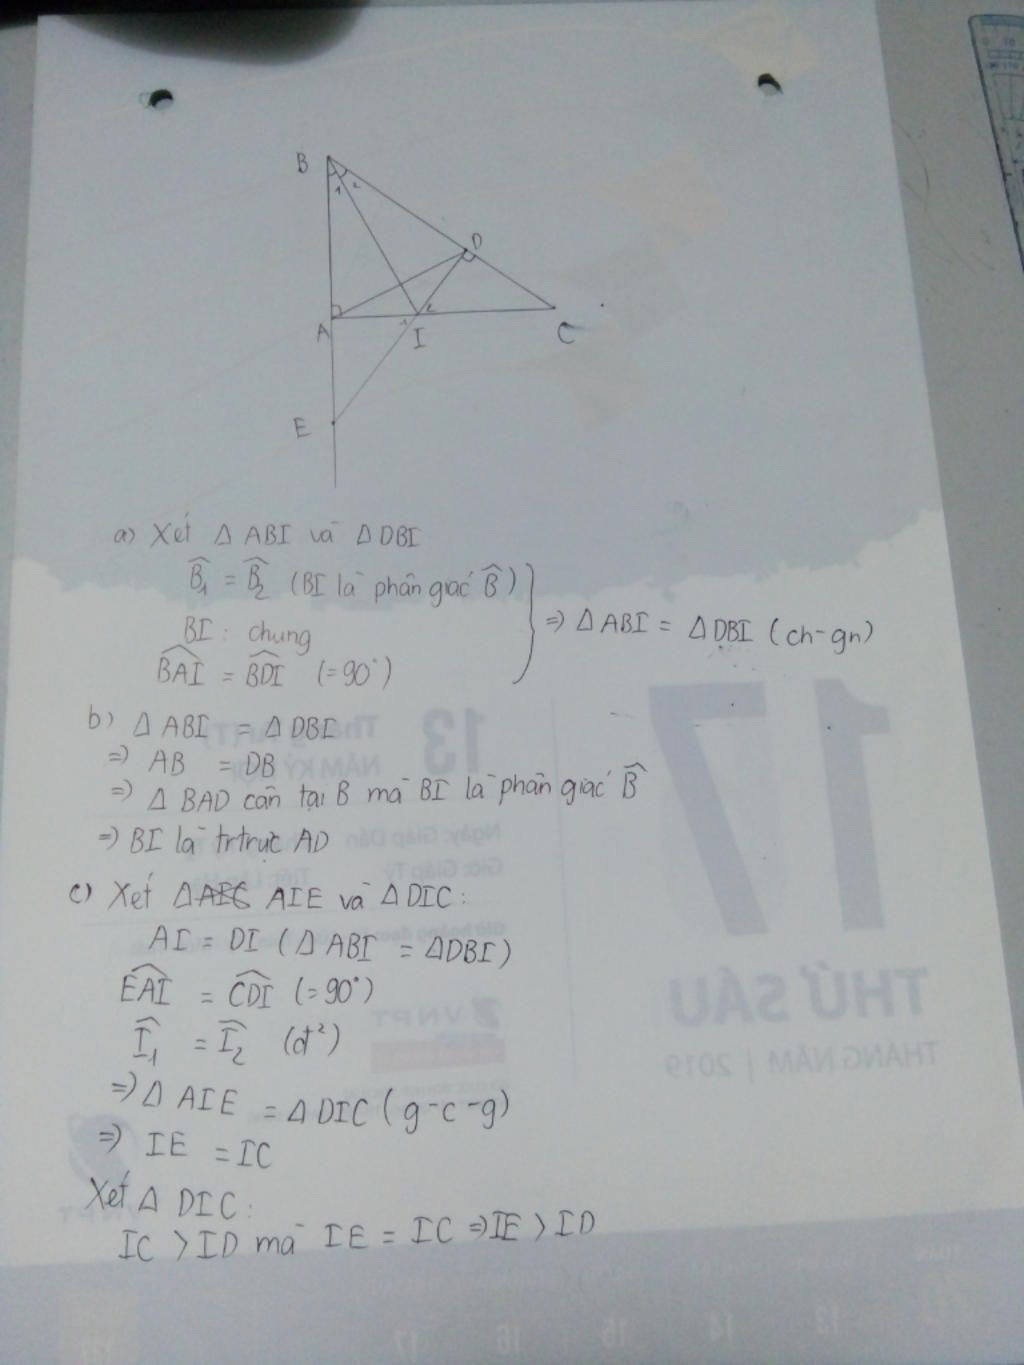 B
1 2
D
A
1
I
2
C
E
a) Xét Δ ABI và Δ DBI
B̂₁ = B̂₂ (BI là phân giác B̂)
BI : chung
⇒ Δ ABI = Δ DBI (ch-gn)
BAI = BDI (= 90°)
b) Δ ABI = Δ DBI
⇒ AB = DB
⇒ Δ BAD cân tại B mà BI là phân giác B̂
⇒ BI là trtrực AD
c) Xét Δ AIE và Δ DIC:
AI = DI (Δ ABI = ΔDBI)
EAI = CDI (= 90°)
Î₁ = Î₂ (đ²)
⇒ Δ AIE = Δ DIC (g-c-g)
⇒ IE = IC
Xét Δ DIC:
IC > ID mà IE = IC ⇒ IE > ID
13
NĂM KỶ HỢI
17
THỨ SÁU
THÁNG NĂM | 2019
VNPT